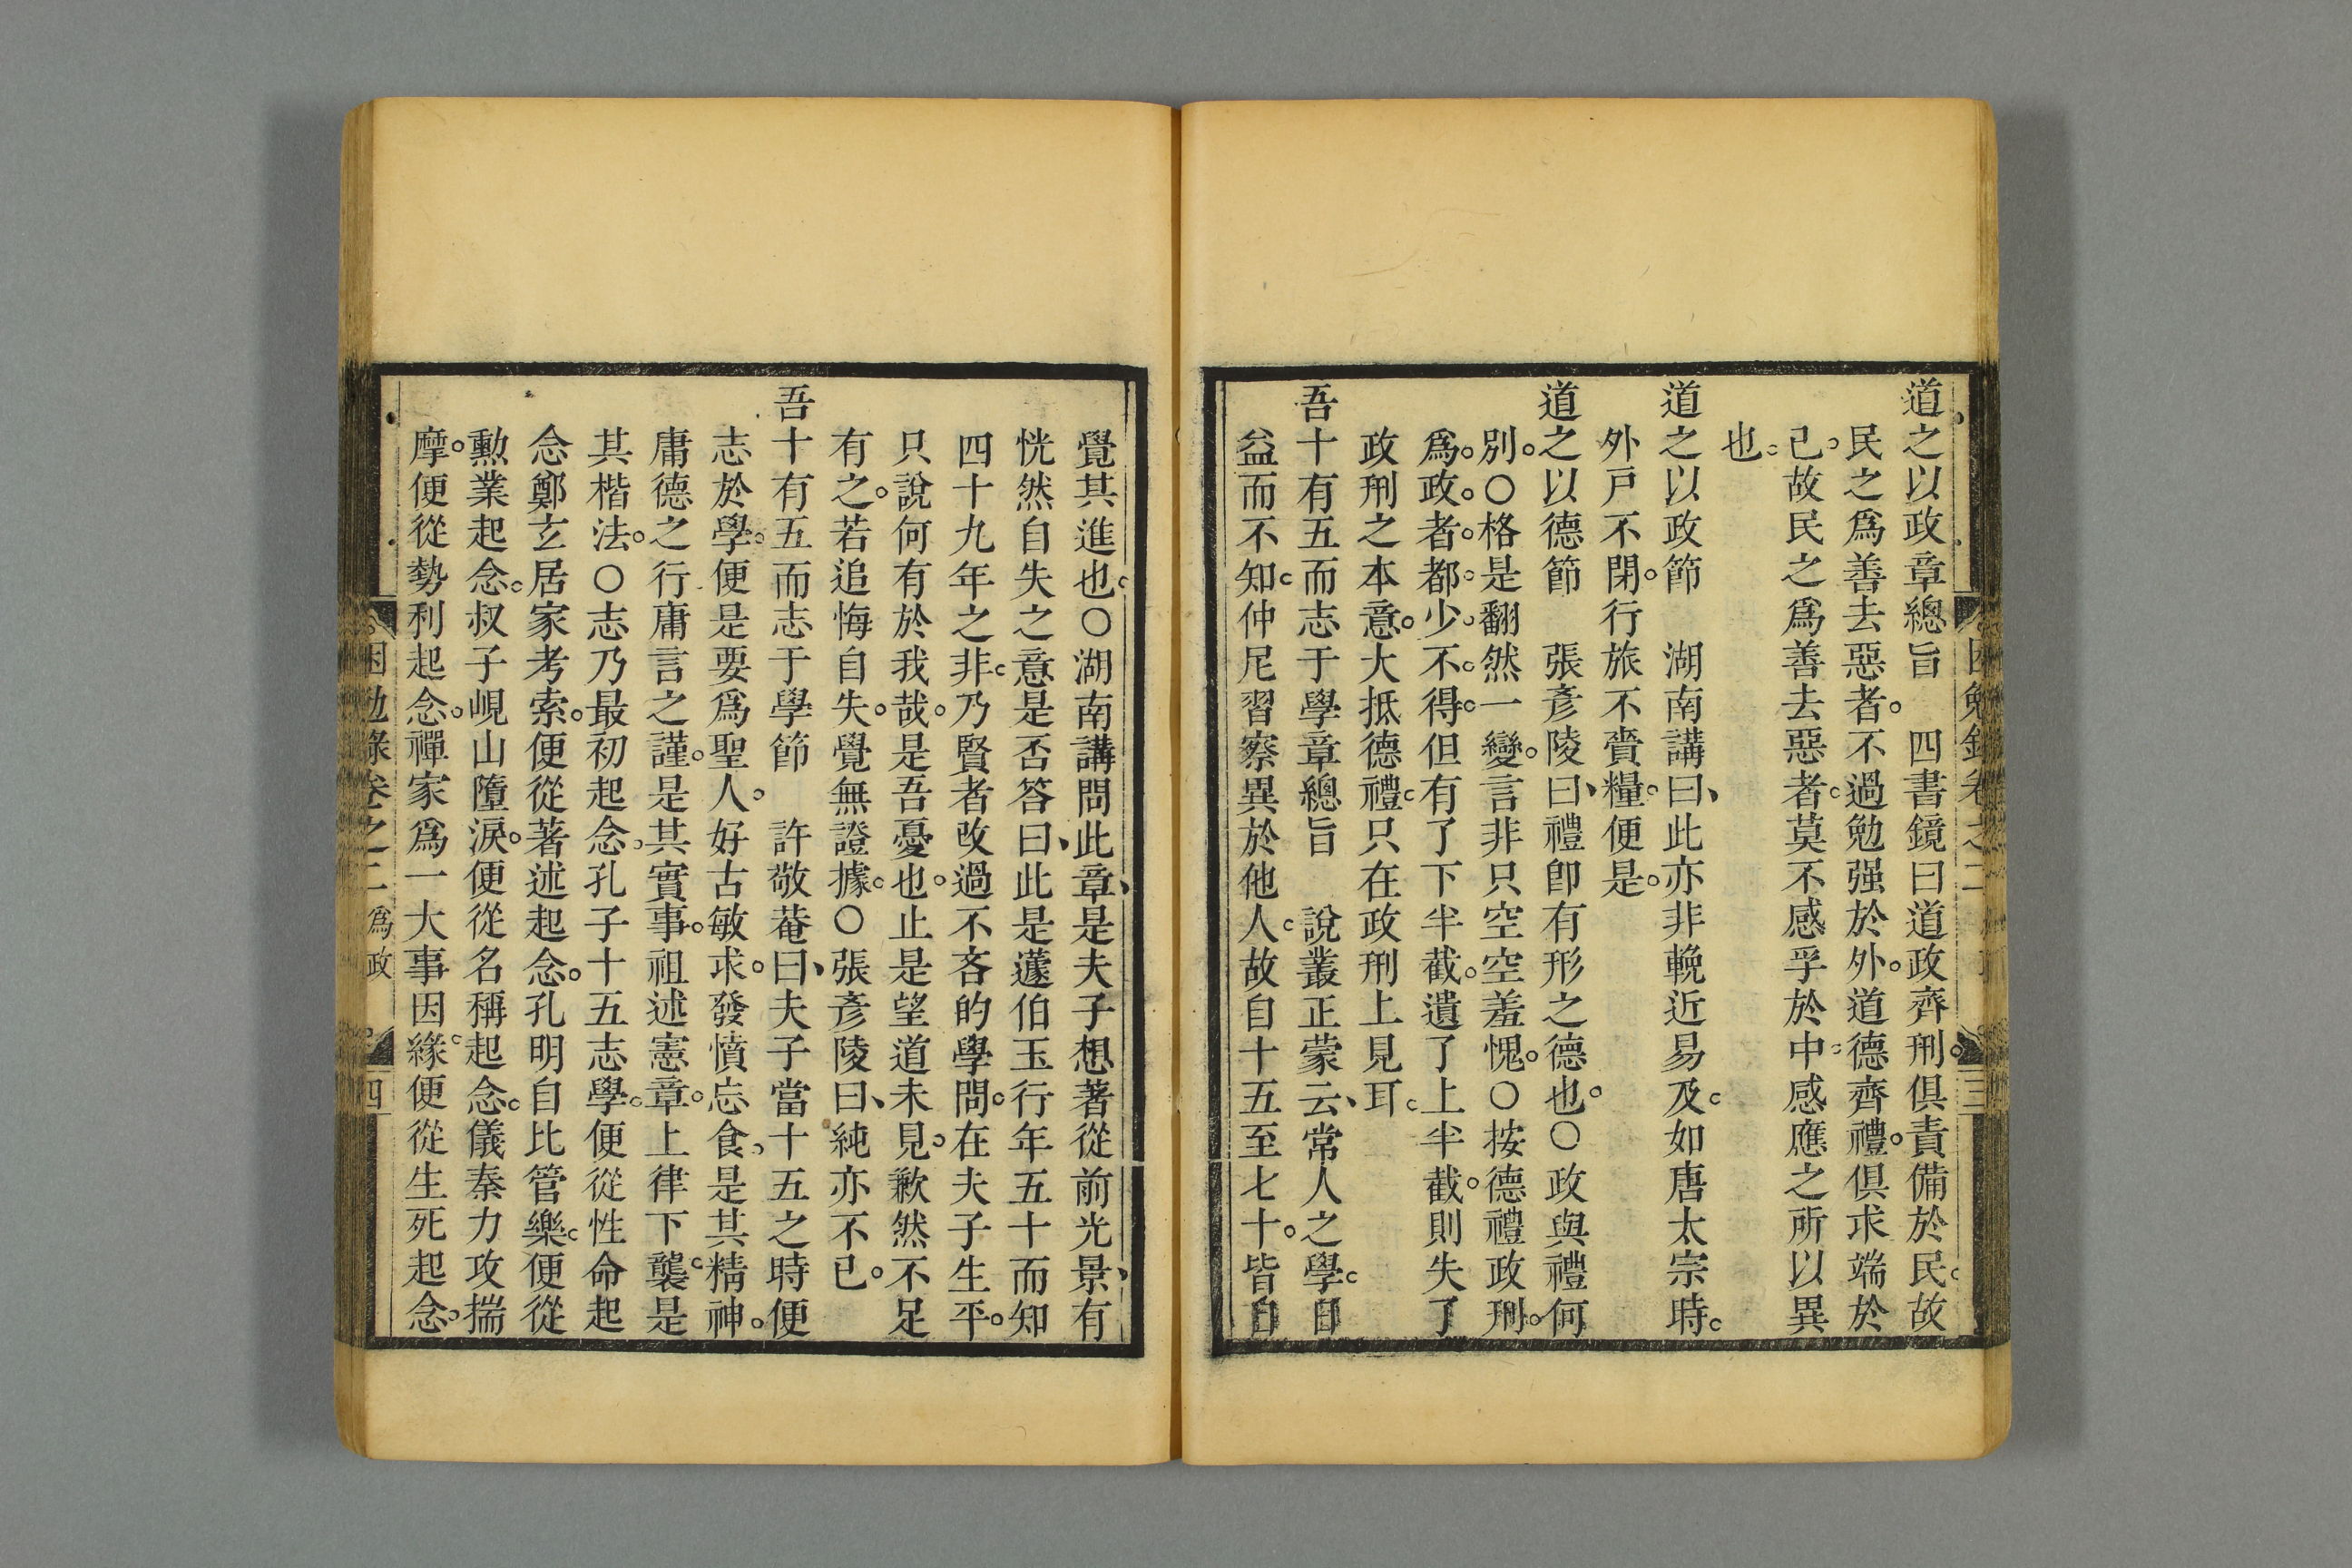 道之以政章總旨　四書鏡曰道政齊刑。俱責備於民。故
民之爲善去惡者。不過勉强於外。道德齊禮。俱求端於
己。故民之爲善去惡者。莫不感孚於中。感應之所以異
也。
道之以政節　湖南講曰、此亦非輓近易及。如唐太宗時。
外戸不閉。行旅不賫糧。便是。
道之以德節　張彥陵曰、禮卽有形之德也。〇政與禮何
別。〇格是翻然一變。言非只空空羞愧。〇按德禮政刑。
爲。政。者。都。少。不。得。但有了下半截。遺了上半截。則失了
政刑之本意。大抵德禮。只在政刑上見耳。
吾十有五而志于學章總旨　說叢正蒙云、常人之學。日
益而不知。仲尼習察異於他人。故自十五至七十。皆自
覺其進也。〇湖南講問此章、是夫子想著從前光景、有
恍然自失之意是否答曰、此是蘧伯玉行年五十而知
四十九年之非。乃賢者改過不吝的學問。在夫子生平。
只說何有於我哉。是吾憂也。止是望道未見。歉然不足
有之。若追悔自失。覺無證據。〇張彥陵曰、純亦不已。
吾十有五而志于學節　許敬菴曰、夫子當十五之時便
志於學。便是要爲聖人。好古敏求。發憤忘食。是其精神。
庸德之行庸言之謹。是其實事。祖述憲章。上律下襲。是
其楷法。〇志乃最初起念。孔子十五志學。便從性命起
念鄭玄居家考索。便從著述起念。孔明自比管樂。便從
勲業起念。叔子峴山墮淚。便從名稱起念。儀秦力攻揣
摩。便從勢利起念。禪家爲一大事因緣。便從生死起念。
困勉錄卷之二 爲政 四